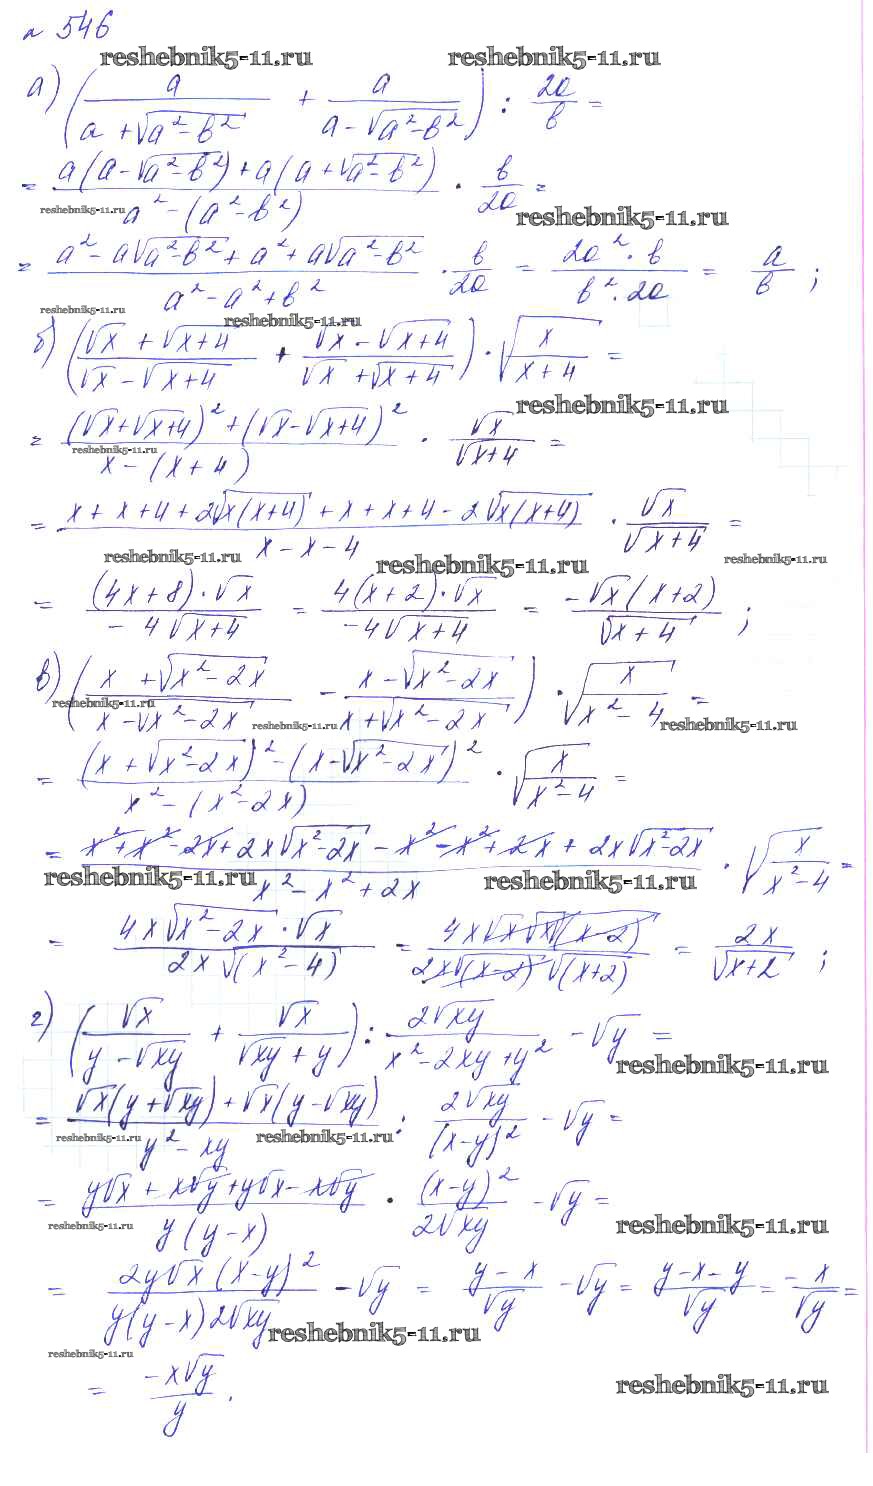 № 546
reshebnik5-11.ru reshebnik5-11.ru
а) (a/(a + √(a² - b²)) + a/(a - √(a² - b²))) : 2a/b =
= (a(a - √(a² - b²)) + a(a + √(a² - b²)))/(a² - (a² - b²)) · b/2a =
reshebnik5-11.ru reshebnik5-11.ru
= (a² - a√(a² - b²) + a² + a√(a² - b²))/(a² - a² + b²) · b/2a = (2a² · b)/(b² · 2a) = a/b ;
reshebnik5-11.ru reshebnik5-11.ru
б) ((√x + √(x+4))/(√x - √(x+4)) + (√x - √(x+4))/(√x + √(x+4))) · √(x/(x+4)) =
reshebnik5-11.ru
= ((√x + √(x+4))² + (√x - √(x+4))²)/(x - (x+4)) · √x/√(x+4) =
reshebnik5-11.ru
= (x + x + 4 + 2√(x(x+4)) + x + x + 4 - 2√(x(x+4)))/(x - x - 4) · √x/√(x+4) =
reshebnik5-11.ru reshebnik5-11.ru reshebnik5-11.ru
= ((4x + 8) · √x)/(-4√(x+4)) = (4(x+2) · √x)/(-4√(x+4)) = (-√x(x+2))/√(x+4) ;
в) ((x + √(x² - 2x))/(x - √(x² - 2x)) - (x - √(x² - 2x))/(x + √(x² - 2x))) · √(x/(x² - 4)) =
reshebnik5-11.ru reshebnik5-11.ru reshebnik5-11.ru
= ((x + √(x² - 2x))² - (x - √(x² - 2x))²)/(x² - (x² - 2x)) · √(x/(x² - 4)) =
= (x² + x² - 2x + 2x√(x² - 2x) - x² - x² + 2x + 2x√(x² - 2x))/(x² - x² + 2x) · √(x/(x² - 4)) =
reshebnik5-11.ru reshebnik5-11.ru
= (4x√(x² - 2x) · √x)/(2x√(x² - 4)) = (4x√x√x√(x-2))/(2x√(x-2)√(x+2)) = 2x/√(x+2) ;
г) (√x/(y - √xy) + √x/(√xy + y)) : 2√xy/(x² - 2xy + y²) - √y =
reshebnik5-11.ru
= (√x(y + √xy) + √x(y - √xy))/(y² - xy) : 2√xy/(x-y)² - √y =
reshebnik5-11.ru reshebnik5-11.ru
= (y√x + x√y + y√x - x√y)/(y(y-x)) · (x-y)²/2√xy - √y =
reshebnik5-11.ru reshebnik5-11.ru
= (2y√x (x-y)²)/(y(y-x)2√xy) - √y = (y - x)/√y - √y = (y - x - y)/√y = -x/√y =
reshebnik5-11.ru
reshebnik5-11.ru reshebnik5-11.ru
= -x√y/y .